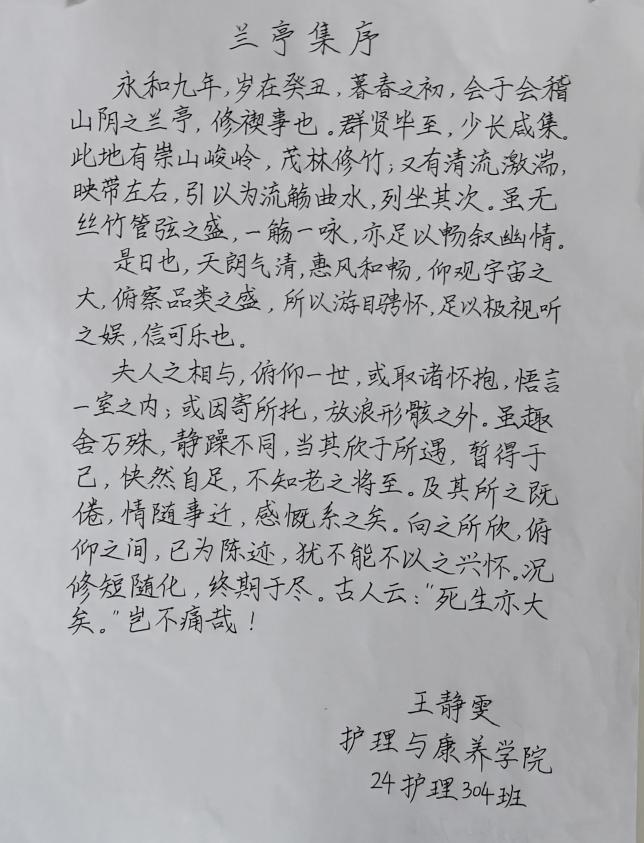 兰亭集序
永和九年，岁在癸丑，暮春之初，会于会稽
山阴之兰亭，修禊事也。群贤毕至，少长咸集。
此地有崇山峻岭，茂林修竹；又有清流激湍，
映带左右，引以为流觞曲水，列坐其次。虽无
丝竹管弦之盛，一觞一咏，亦足以畅叙幽情。
是日也，天朗气清，惠风和畅，仰观宇宙之
大，俯察品类之盛，所以游目骋怀，足以极视听
之娱，信可乐也。
夫人之相与，俯仰一世，或取诸怀抱，悟言
一室之内；或因寄所托，放浪形骸之外。虽趣
舍万殊，静躁不同，当其欣于所遇，暂得于
己，快然自足，不知老之将至。及其所之既
倦，情随事迁，感慨系之矣。向之所欣，俯
仰之间，已为陈迹，犹不能不以之兴怀。况
修短随化，终期于尽。古人云：“死生亦大
矣。”岂不痛哉！
王静雯
护理与康养学院
24护理304班